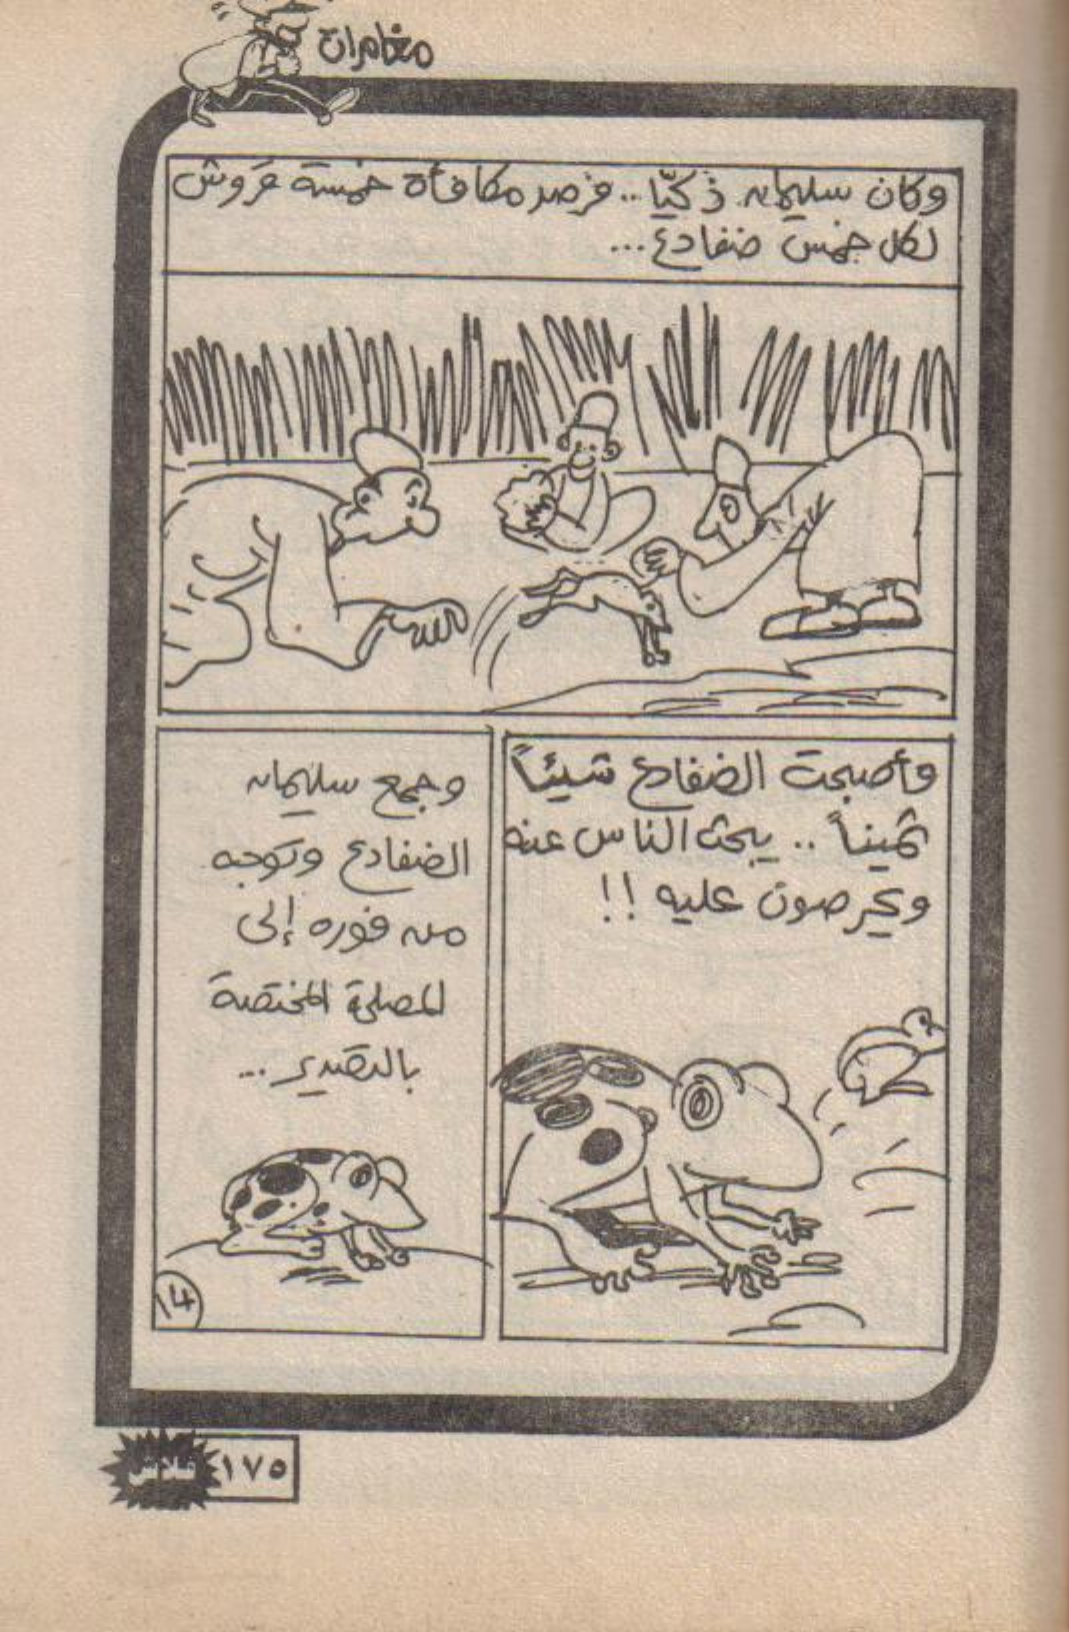 مغامرات
وكان سليمان ذكيّا.. فرصد مكافأة خمسة قروش
لكل خمس ضفادع...
وأصبحت الضفادع شيئاً
ثميناً.. يبحث الناس عنه
ويحرصون عليه !!
وجمع سليمان
الضفادع وتوجه
من فوره إلى
المصلحة المختصة
بالتصدير...
١٤
فلاش ١٧٥